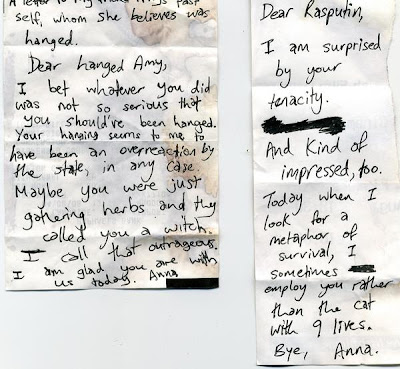 A letter to my friend Amy's past
self, whom she believes was
hanged.
Dear Hanged Amy,
I bet whatever you did
was not so serious that
you should've been hanged.
Your hanging seems to me to
have been an overreaction by
the state, in any case.
Maybe you were just
gathering herbs and they
called you a witch.
I call that outrageous.
I am glad you are with
us today. Anna
Dear Rasputin,
I am surprised
by your
tenacity.
And Kind of
impressed, too.
Today when I
look for a
metaphor of
survival, I
sometimes
employ you rather
than the cat
with 9 lives.
Bye, Anna.